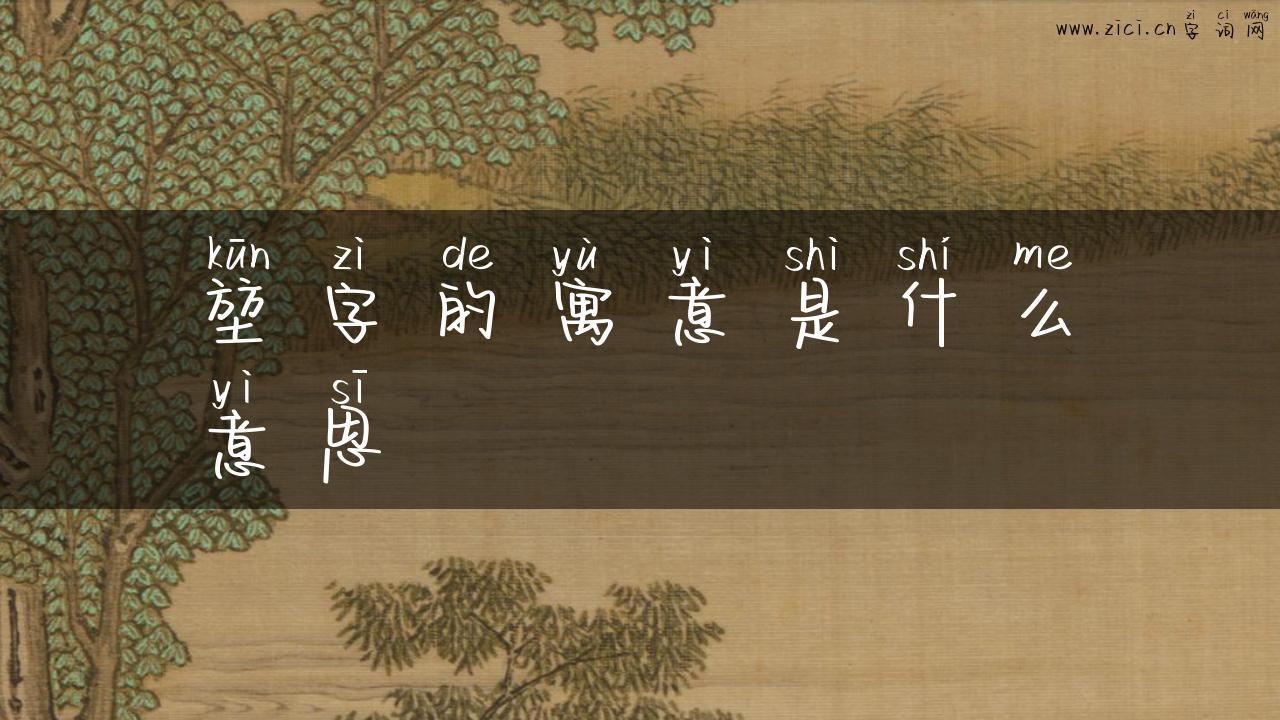 zì cí wǎng
www.zici.cn字词网
kūn zì de yù yì shì shí me
堃字的寓意是什么
yì sī
意思